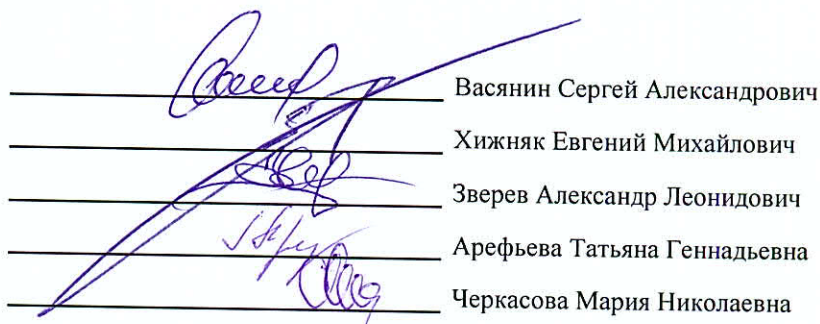 Васянин Сергей Александрович
Хижняк Евгений Михайлович
Зверев Александр Леонидович
Арефьева Татьяна Геннадьевна
Черкасова Мария Николаевна